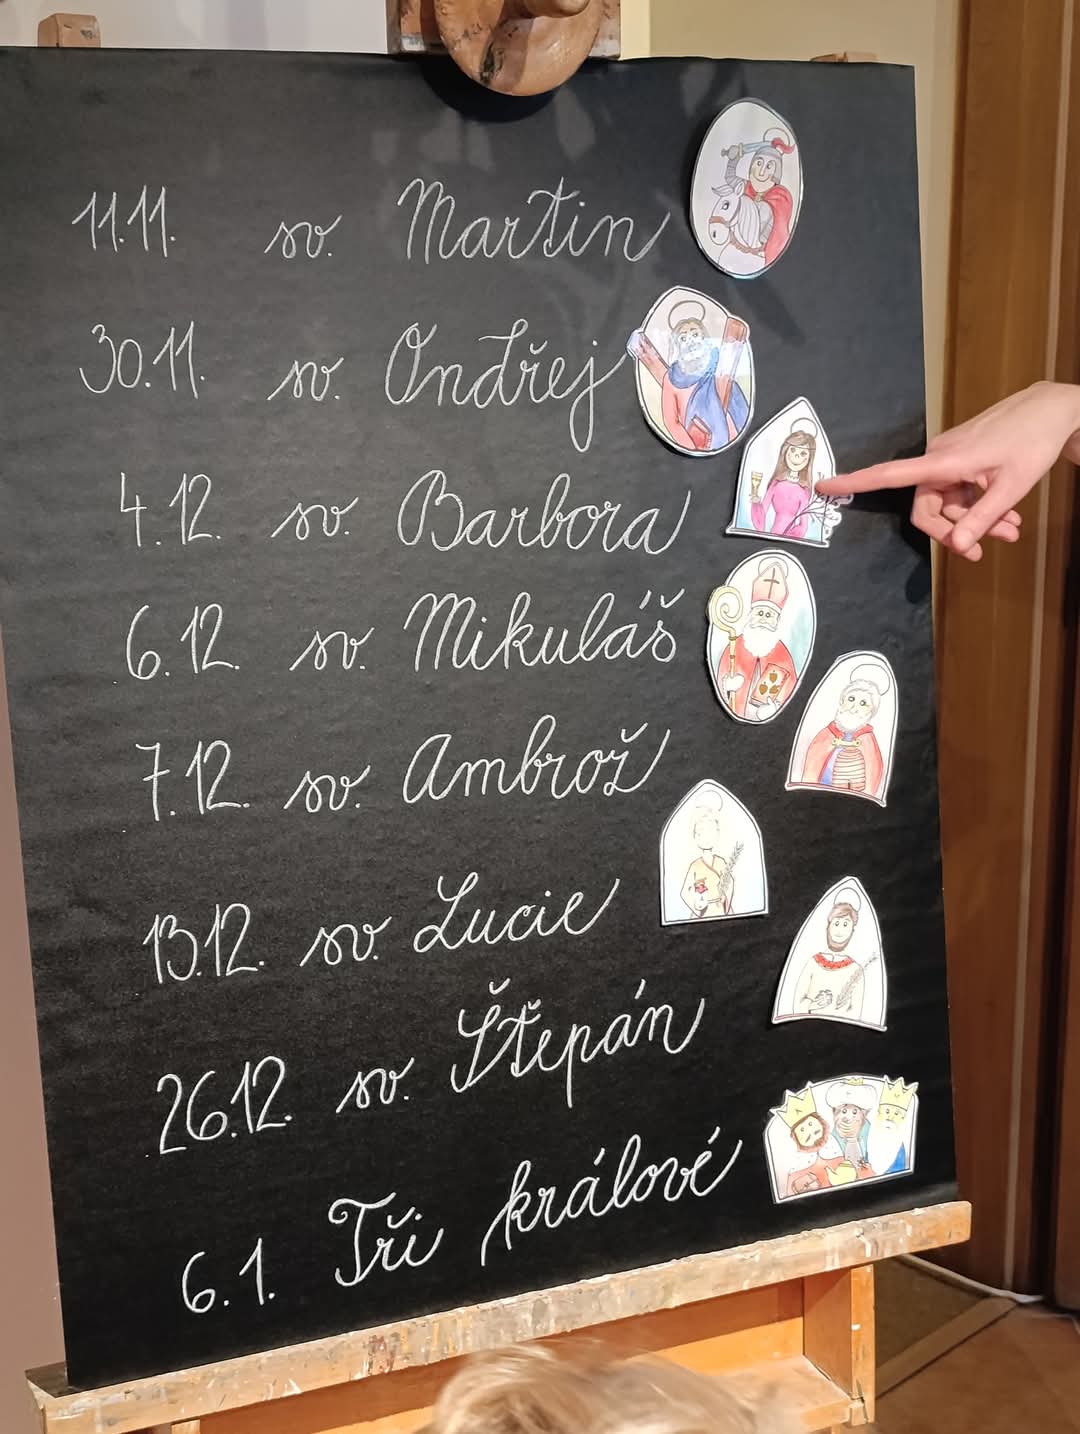 11.11. sv. Martin
30.11. sv. Ondřej
4.12. sv. Barbora
6.12. sv. Mikuláš
7.12. sv. Ambrož
13.12. sv. Lucie
26.12. sv. Štěpán
6.1. Tři králové